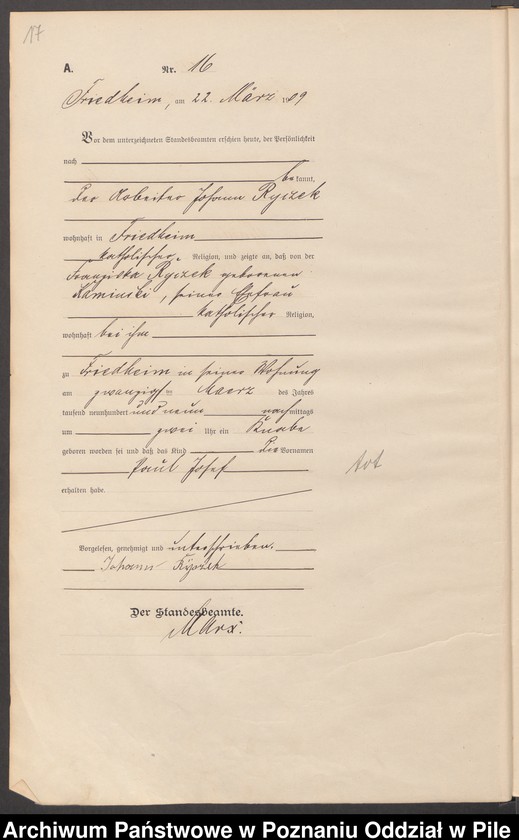 17
A.
Nr. 16
Friedheim, am 22. März 1909
Vor dem unterzeichneten Standesbeamten erschien heute, der Persönlichkeit
nach
bekannt,
der Arbeiter Johann Ryczek
wohnhaft in Friedheim
katholischer Religion, und zeigte an, daß von der
Franziska Ryczek geborenen
Kaminski, seiner Ehefrau
katholischer Religion,
wohnhaft bei ihm
zu Friedheim in seiner Wohnung
am zwanzigsten Maerz des Jahres
tausend neunhundert und neun nachmittags
um zwei Uhr ein Knabe
geboren worden sei und daß das Kind die Vornamen
Paul Josef
tot
erhalten habe.
Vorgelesen, genehmigt und unterschrieben.
Johann
Der Standesbeamte.
Marx.
Archiwum Państwowe w Poznaniu Oddział w Pile